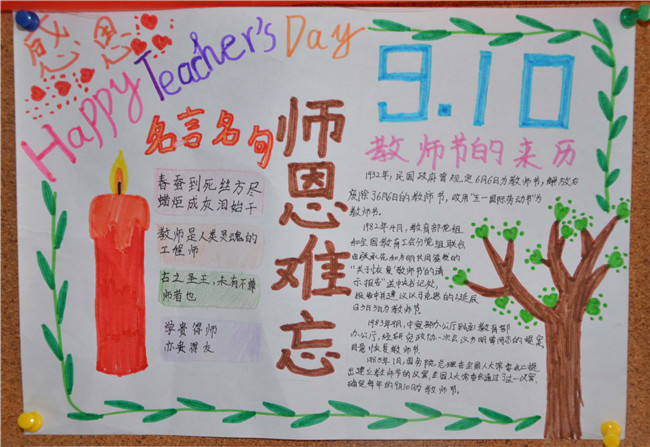 感恩
Happy Teacher's Day
9.10
名言名句
师恩难忘
教师节的来历
春蚕到死丝方尽
蜡炬成灰泪始干
教师是人类灵魂的
工程师
古之圣王,未有不尊
师者也
学贵得师
亦贵得友
1932年,民国政府曾规定6月6日为教师节,解放后
废除了6月6日的教师节,改用"五一国际劳动节"为
教师节。
1982年4月,教育部党组
和全国教育工会分党组联合
"关于恢复"教师节"的请
示报告"
为教师节
办公厅,经研究
恢复教师节
1985年1月,国务院总理向全国人大常委会提
出建立教师节的议案,全国人大常委会通过了这一议案,
确定每年的9月10日为教师节。